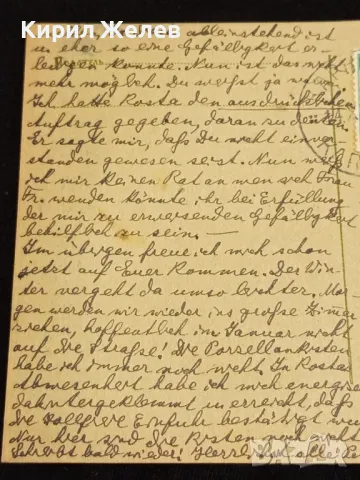 Кирил Желев
alleinstehend ist
u. eher so eine Gefälligkeit er-
ledigen könnte. Nun ist das nicht
mehr möglich. Du weisst ja warum.
Ich hatte Kosta den ausdrücklichen
Auftrag gegeben, daran zu denken.
Er sagte mir, dass Du nicht einver-
standen gewesen seist. Nun weiss
ich mir keinen Rat an wen sich Frau
Fr. wenden könnte ihr bei Erfüllung
der mir zu erweisenden Gefälligkeit
behilflich zu sein. —
Im übrigen freue ich mich schon
jetzt auf Euer Kommen. Der Win-
ter vergeht da umso leichter. Mor-
gen werden wir wieder ins grosse Zimmer
ziehen, hoffentlich im Januar nicht
auf die Strasse! Die Porzellankisten
habe ich immer noch nicht. In Kostas
Abwesenheit habe ich mich energisch
dahintergeklemmt u. erreicht, dass
die zollfreie Einfuhr bestätigt
Nur hier sind die Kisten noch nicht
Schreibt bald wieder! Herzlichst alle
bazar.bg